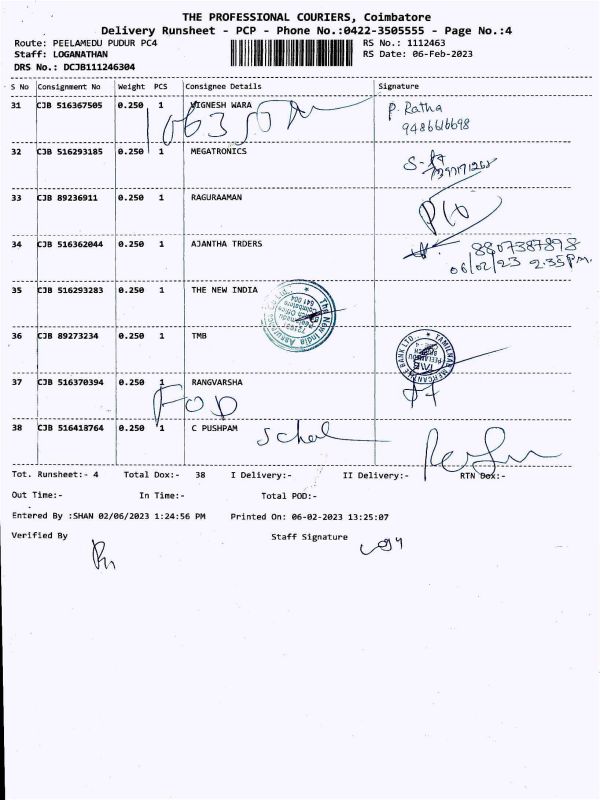 THE PROFESSIONAL COURIERS, Coimbatore
Delivery Runsheet - PCP - Phone No.:0422-3505555 - Page No.:4
Route: PEELAMEDU PUDUR PC4 RS No.: 1112463
Staff: LOGANATHAN RS Date: 06-Feb-2023
DRS No.: DCJB111246304
S No Consignment No Weight PCS Consignee Details Signature
31 CJB 516367505 0.250 1 VIGNESH WARA P. Ratha
9486616698
32 CJB 516293185 0.250 1 MEGATRONICS
33 CJB 89236911 0.250 1 RAGURAAMAN
34 CJB 516362044 0.250 1 AJANTHA TRDERS 8807387898
06/02/23 2.35 Pm.
35 CJB 516293283 0.250 1 THE NEW INDIA
36 CJB 89273234 0.250 1 TMB
37 CJB 516370394 0.250 1 RANGVARSHA
FOD
38 CJB 516418764 0.250 1 C PUSHPAM
Tot. Runsheet:- 4 Total Dox:- 38 I Delivery:- II Delivery:- RTN Dox:-
Out Time:- In Time:- Total POD:-
Entered By :SHAN 02/06/2023 1:24:56 PM Printed On: 06-02-2023 13:25:07
Verified By Staff Signature